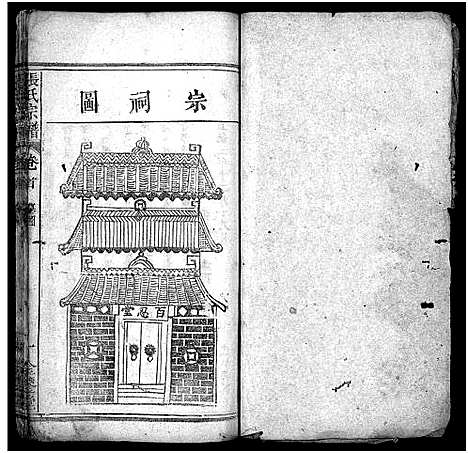 宗祠圖
百忍堂
張氏宗譜
卷首